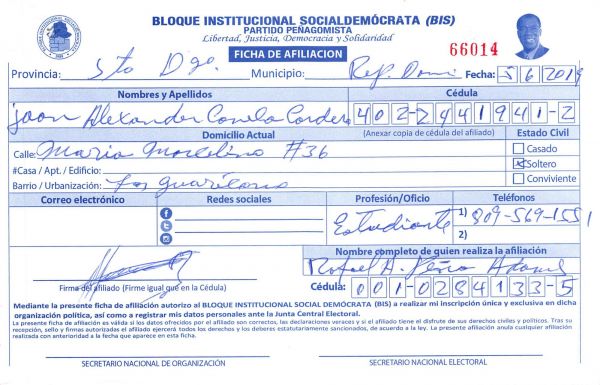 BLOQUE INSTITUCIONAL SOCIALDEMÓCRATA (BIS)
PARTIDO PEÑAGOMISTA
Libertad, Justicia, Democracia y Solidaridad
FICHA DE AFILIACION
66014
Provincia: Sto Dgo. Municipio: Rep. Domi Fecha: 5 6 2019
Nombres y Apellidos Cédula
Alexander Cordero 402-2441941-2
Domicilio Actual (Anexar copia de cédula del afiliado) Estado Civil
Calle: Maria #36 Casado
#Casa / Apt. / Edificio: Soltero
Barrio / Urbanización: Los Conviviente
Correo electrónico Redes sociales Profesión/Oficio Teléfonos
Estudiante 1) 809-569-1551
2)
Nombre completo de quien realiza la afiliación
Rafael A. Peña
Firma del afiliado (Firme igual que en la Cédula) Cédula: 001-0284133-5
Mediante la presente ficha de afiliación autorizo al BLOQUE INSTITUCIONAL SOCIAL DEMÓCRATA (BIS) a realizar mi inscripción única y exclusiva en dicha
organización política, así como a registrar mis datos personales ante la Junta Central Electoral.
La presente ficha de afiliación es válida si los datos ofrecidos por el afiliado son correctos, las declaraciones veraces y si el afiliado tiene el disfrute de sus derechos civiles y políticos. Tras su
recepción, sello y firma autorizadas el afiliado ejercerá todos los derechos y los deberes estatutariamente sancionados, de acuerdo a la ley. La presente afiliación anula cualquier afiliación
realizada con anterioridad a la fecha que aparece en esta ficha.
SECRETARIO NACIONAL DE ORGANIZACIÓN SECRETARIO NACIONAL ELECTORAL